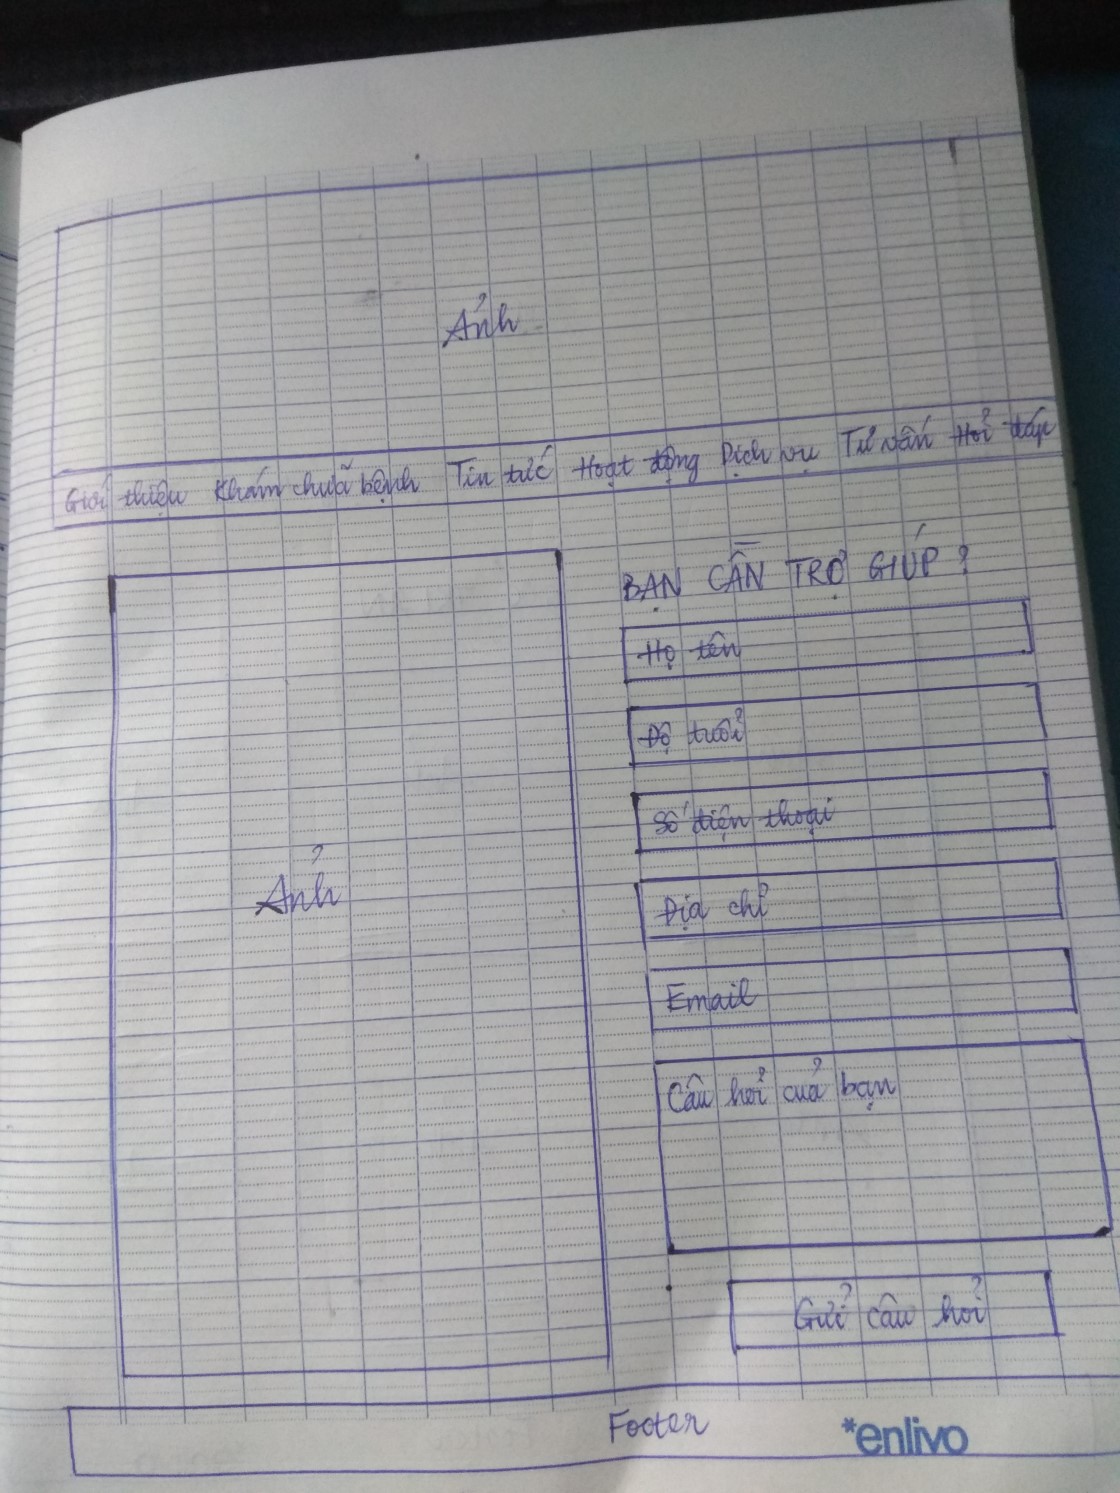 Ảnh
Giới thiệu Khám chữa bệnh Tin tức Hoạt động Dịch vụ Tư vấn Hỏi đáp
BẠN CẦN TRỢ GIÚP ?
Họ tên
Độ tuổi
Số điện thoại
Địa chỉ
Email
Câu hỏi của bạn
Gửi câu hỏi
Ảnh
Footer
*enlivo